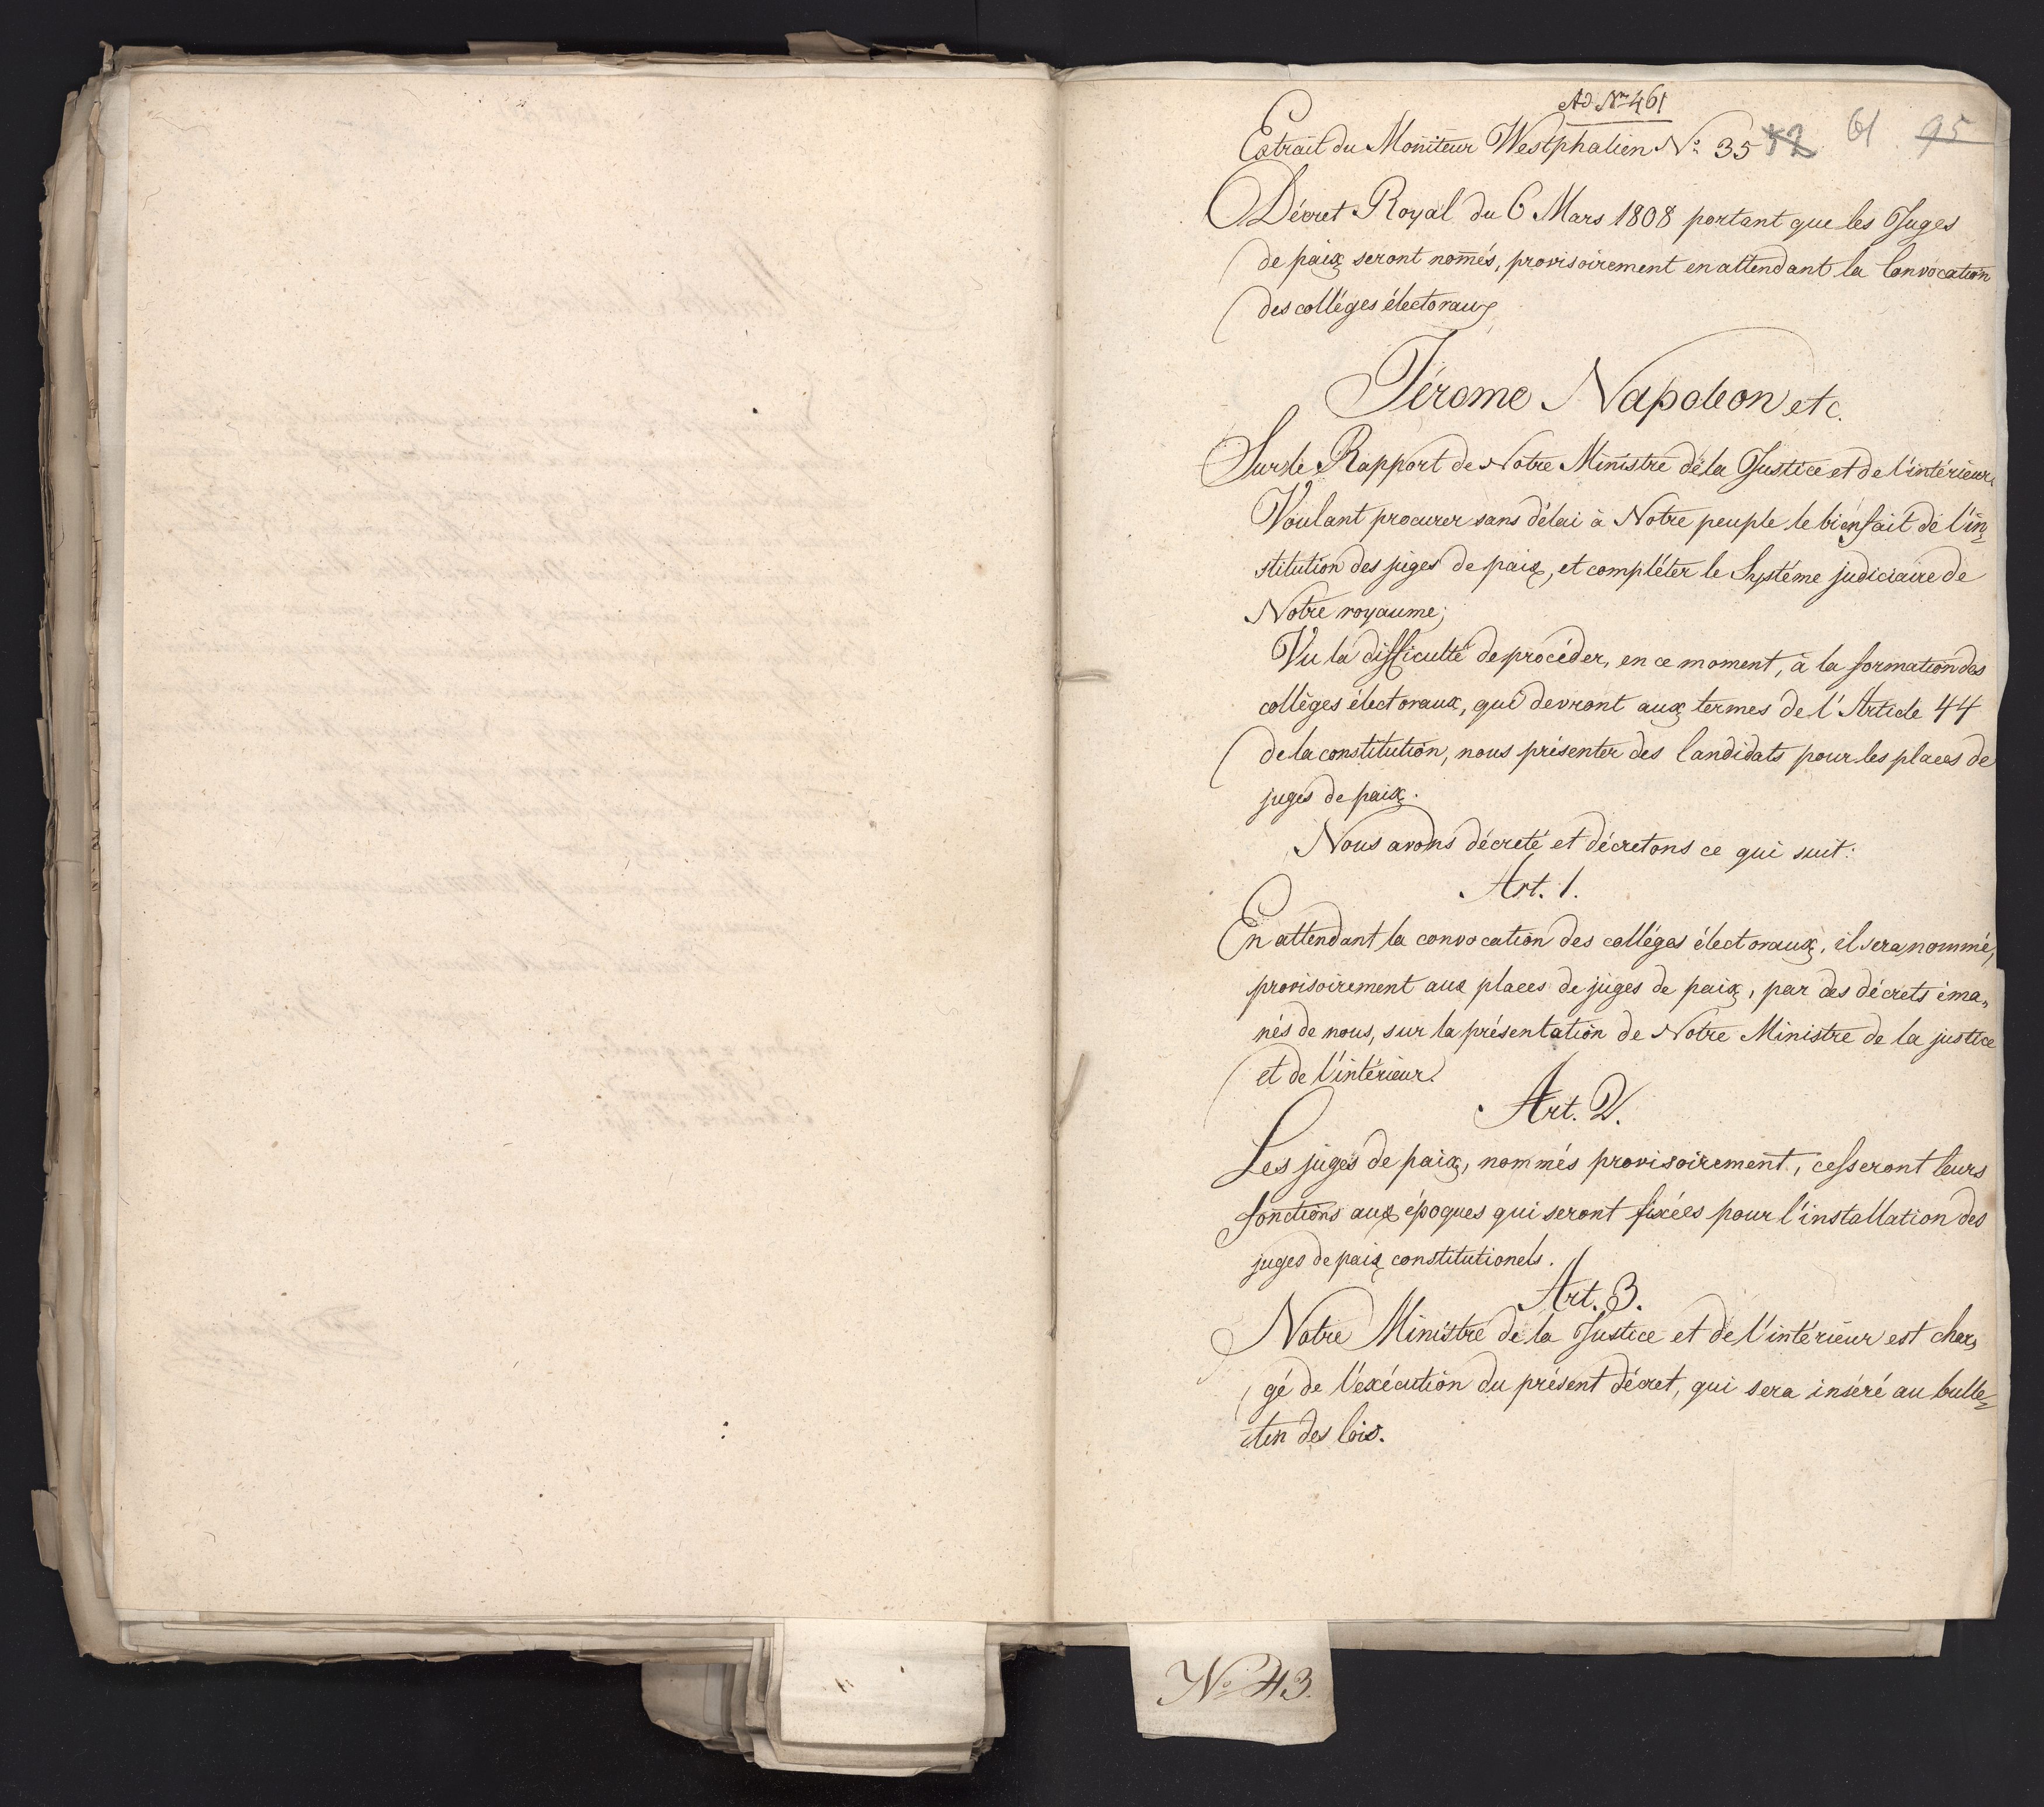 Ad. Nr. 461
Extrait du Moniteur Westphalien No. 35 52 61 95
Décret Royal du 6 Mars 1808 portant que les Juges
de paix seront nom̄és, provisoirement en attendant la Convocation
des colléges électoraux
Jérome Napoleon etc.
Sur le Rapport de Notre Ministre de la Justice et de l'intérieur.
Voulant procurer sans délai à Notre peuple le bienfait de l'in,
stitution des juges de paix, et compléter le Systéme judiciaire de
Notre royaume;
Vu la difficulté de procéder, en ce moment, à la formation des
colléges électoraux, qui devront aux termes de l'Article 44
de la constitution, nous présenter des Candidats pour les places de
juges de paix.
Nous avons décreté et décretons ce qui suit:
Art. 1.
En attendant la convocation des colléges électoraux, il sera nommé,
provisoirement aux places de juges de paix, par des décrets éma,
nés de nous, sur la présentation de Notre Ministre de la justice
et de l'intérieur.
Art. 2.
Les juges de paix, nommés provisoirement, cesseront leurs
fonctions aux époques qui seront fixées pour l'installation des
juges de paix constitutionels.
Art. 3.
Notre Ministre de la Justice et de l'intérieur est char,
gé de l'exécution du présent décret, qui sera inséré au bulle,
tin des lois.
No 43.